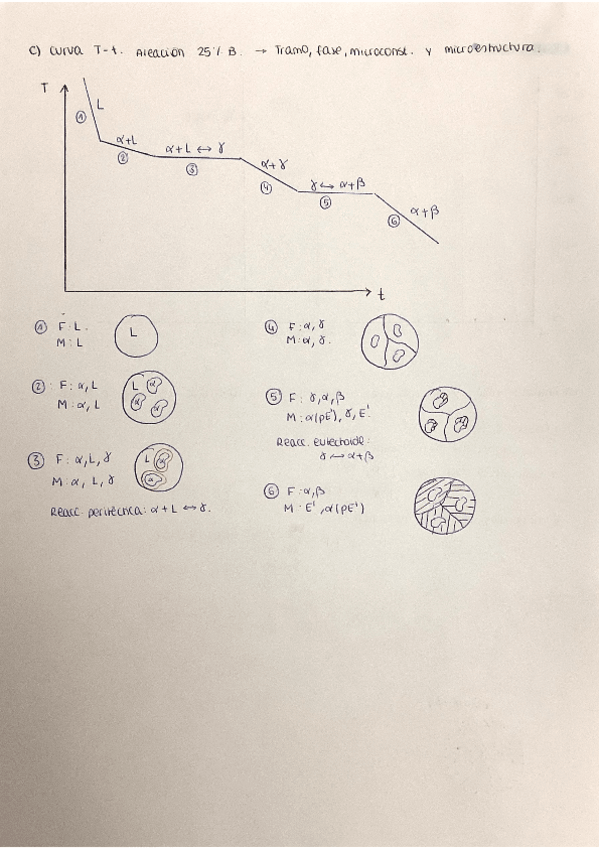 C) curva T-t. Aleación 25% B. → Tramo, fase, microconst. y microestructura.
T
① L
α+L
②
α+L ↔ γ
③
α+γ
④
γ ↔ α+β
⑤
α+β
⑥
t
① F: L.
M: L
L
② : F: α, L
M: α, L
L α
α α
③ F: α, L, γ
M: α, L, γ
L α
α
Reacc. peritéctica: α + L ↔ γ.
④ F: α, γ
M: α, γ.
⑤ F: γ, α, β
M: α(pE'), γ, E'
Reacc. eutectoide:
γ ↔ α+β
⑥ F: α, β
M: E', α(pE')